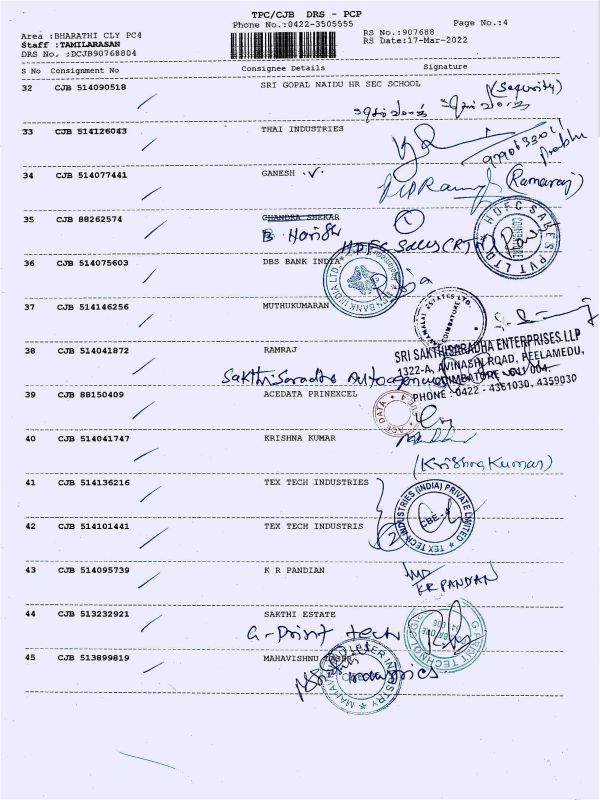 TPC/CJB DRS - PCP
Phone No.:0422-3505555
Page No.:4
Area :BHARATHI CLY PC4
RS No.:907688
Staff :TAMILARASAN
RS Date:17-Mar-2022
DRS No. :DCJB90768804
S No Consignment No Consignee Details Signature
32 CJB 514090518 SRI GOPAL NAIDU HR SEC SCHOOL (Security)
33 CJB 514126043 THAI INDUSTRIES
Prabhu
34 CJB 514077441 GANESH .V. (Ramaraj)
35 CJB 88262574 CHANDRA SHEKAR
HDFC SALES PVT LTD
HDFC Sales
36 CJB 514075603 DBS BANK INDIA
DBS BANK INDIA LTD
37 CJB 514146256 MUTHUKUMARAN
ESTATES LTD.
COIMBATORE
38 CJB 514041872 RAMRAJ
SRI SAKTHISARADHA ENTERPRISES LLP
1322-A, AVINASHI ROAD, PEELAMEDU,
COIMBATORE - 641 004.
PHONE : 0422 - 4361030, 4359030
39 CJB 88150409 ACEDATA PRINEXCEL
ACE DATA
40 CJB 514041747 KRISHNA KUMAR
(Krishna Kumar)
41 CJB 514136216 TEX TECH INDUSTRIES
TEX TECH INDUSTRIES (INDIA) PRIVATE LIMITED
CBE-4
42 CJB 514101441 TEX TECH INDUSTRIS
43 CJB 514095739 K R PANDIAN
KR PANDIAN
44 CJB 513232921 SAKTHI ESTATE
G-Print tech
G PRINT TECHNOLOGIES
45 CJB 513899819 MAHAVISHNU LASER
LASER INDUSTRY
industries